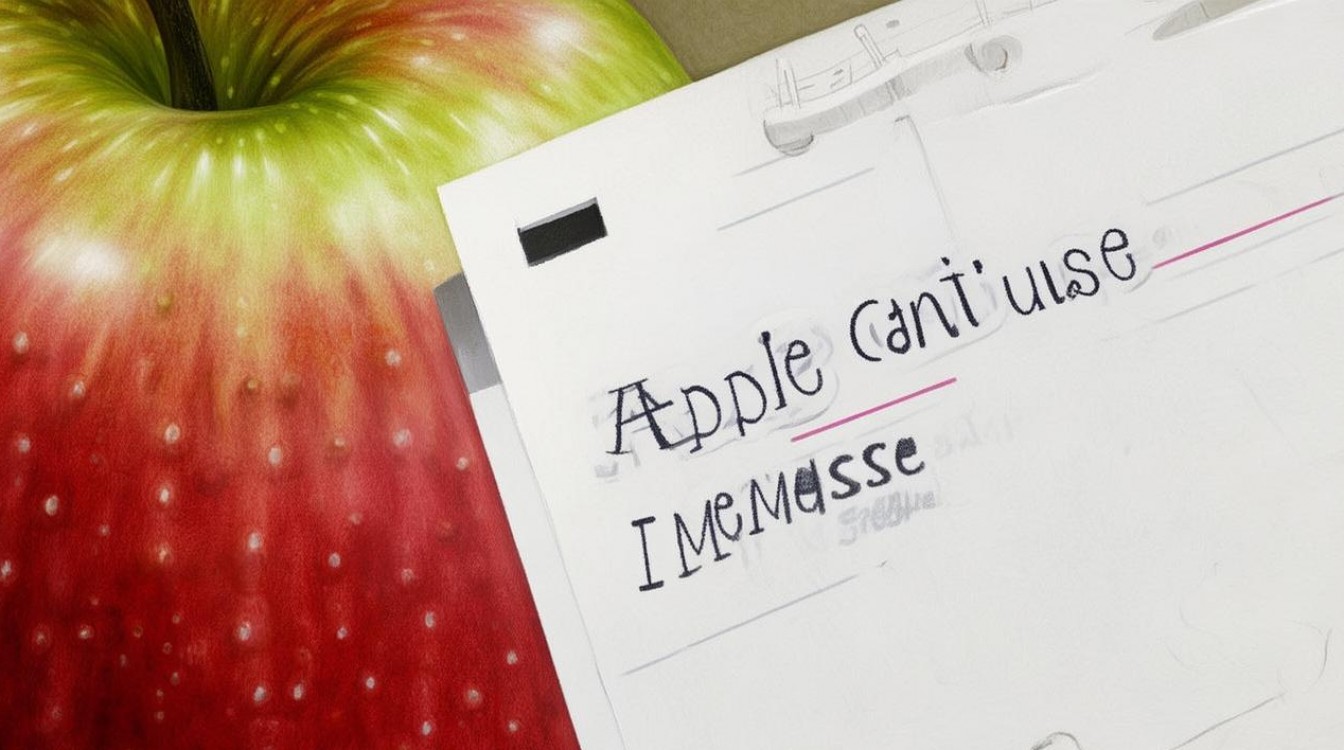 Apple Cant' uise
I Memasse